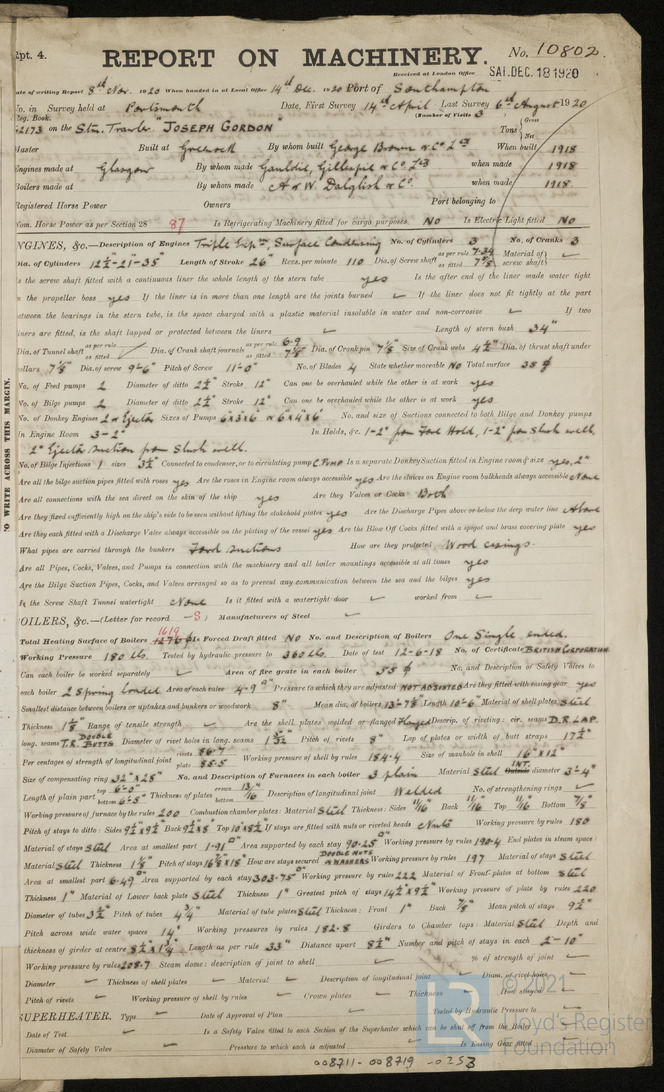 Rpt. 4.
REPORT ON MACHINERY.
No. 10802
Received at London Office SAT. DEC. 18 1920
Date of writing Report 8th Nov. 1920 When handed in at Local Office 14th Dec. 1920 Port of Southampton
No. in Survey held at Portsmouth Date, First Survey 14th April Last Survey 6th August 1920
Reg. Book. (Number of Visits 3
on the Stm. Trawler "JOSEPH GORDON" Tons Gross Net
Master Built at Greenock By whom built George Brown & Co Ltd When built 1918
Engines made at Glasgow By whom made Gauldie, Gillespie & Co Ltd when made 1918
Boilers made at By whom made A & W. Dalglish & Co when made 1918
Registered Horse Power Owners Port belonging to
Nom. Horse Power as per Section 28 87 Is Refrigerating Machinery fitted for cargo purposes NO Is Electric Light fitted NO
ENGINES, &c.—Description of Engines Triple Expn, Surface Condensing No. of Cylinders 3 No. of Cranks 3
Dia. of Cylinders 12½"-21"-35" Length of Stroke 26" Revs. per minute 110 Dia. of Screw shaft as per rule 7.34 as fitted 7⅞ Material of screw shaft
Is the screw shaft fitted with a continuous liner the whole length of the stern tube yes Is the after end of the liner made water tight
in the propeller boss yes If the liner is in more than one length are the joints burned If the liner does not fit tightly at the part
between the bearings in the stern tube, is the space charged with a plastic material insoluble in water and non-corrosive If two
liners are fitted, is the shaft lapped or protected between the liners Length of stern bush 34"
Dia. of Tunnel shaft as per rule as fitted Dia. of Crank shaft journals as per rule 6.9 as fitted 7⅛ Dia. of Crank pin 7⅛ Size of Crank webs 4½" Dia. of thrust shaft under
collars 7⅛" Dia. of screw 9'-6" Pitch of Screw 11'-0" No. of Blades 4 State whether moveable NO Total surface 38
No. of Feed pumps 2 Diameter of ditto 2½" Stroke 12" Can one be overhauled while the other is at work yes
No. of Bilge pumps 2 Diameter of ditto 2½" Stroke 12" Can one be overhauled while the other is at work yes
No. of Donkey Engines 2 & Ejector Sizes of Pumps 6x3x6 & 6x4x6 No. and size of Suctions connected to both Bilge and Donkey pumps
in Engine Room 3-2" In Holds, &c. 1-2" from Fore Hold, 1-2" from Slush well,
2" Ejector suction from slush well.
No. of Bilge Injections 1 sizes 3½ Connected to condenser, or to circulating pump C Pump Is a separate Donkey Suction fitted in Engine room & size yes, 2"
Are all the bilge suction pipes fitted with roses yes Are the roses in Engine room always accessible yes Are the sluices on Engine room bulkheads always accessible None
Are all connections with the sea direct on the skin of the ship yes Are they Valves or Cocks Both
Are they fixed sufficiently high on the ship's side to be seen without lifting the stokehold plates yes Are the Discharge Pipes above or below the deep water line Above
Are they each fitted with a Discharge Valve always accessible on the plating of the vessel yes Are the Blow Off Cocks fitted with a spigot and brass covering plate yes
What pipes are carried through the bunkers Ford suctions How are they protected Wood casings.
Are all Pipes, Cocks, Valves, and Pumps in connection with the machinery and all boiler mountings accessible at all times yes
Are the Bilge Suction Pipes, Cocks, and Valves arranged so as to prevent any communication between the sea and the bilges yes
Is the Screw Shaft Tunnel watertight None Is it fitted with a watertight door worked from
BOILERS, &c.—(Letter for record S) Manufacturers of Steel
Total Heating Surface of Boilers 1619 Is Forced Draft fitted NO No. and Description of Boilers One Single ended.
Working Pressure 180 lbs. Tested by hydraulic pressure to 360 lbs. Date of test 12-6-18 No. of Certificate BRITISH CORPORATION
Can each boiler be worked separately Area of fire grate in each boiler 55 No. and Description of Safety Valves to
each boiler 2 Spring loaded Area of each valve 4.9 Pressure to which they are adjusted NOT ADJUSTED Are they fitted with easing gear yes
Smallest distance between boilers or uptakes and bunkers or woodwork 8" Mean dia. of boilers 13'-7⅛" Length 10'-6" Material of shell plates Steel
Thickness 1⅛" Range of tensile strength Are the shell plates welded or flanged flanged Descrip. of riveting: cir. seams D.R LAP.
long. seams DOUBLE T.R. BUTTS Diameter of rivet holes in long. seams Pitch of rivets 8" Lap of plates or width of butt straps 17½"
Per centages of strength of longitudinal joint rivets 86.7 plate 85.5 Working pressure of shell by rules 184.4 Size of manhole in shell 16"x12"
Size of compensating ring 32"x28" No. and Description of Furnaces in each boiler 3 plain Material Steel INT. diameter 3'-4"
Length of plain part top 6'-0" bottom 6'-5" Thickness of plates crown bottom 13/16" Description of longitudinal joint Welded No. of strengthening rings
Working pressure of furnace by the rules 200 Combustion chamber plates: Material Steel Thickness: Sides 11/16" Back 11/16 Top 11/16 Bottom ⅞"
Pitch of stays to ditto: Sides 9½x9½ Back 9½x8 Top 10"x8½ If stays are fitted with nuts or riveted heads Nuts Working pressure by rules 180
Material of stays Steel Area at smallest part 1.91 Area supported by each stay 90.25 Working pressure by rules 190.4 End plates in steam space:
Material Steel Thickness 1⅛" Pitch of stays 16⅞x18 How are stays secured DOUBLE NUTS & WASHERS Working pressure by rules 197 Material of stays Steel
Area at smallest part 6.49 Area supported by each stay 303.75 Working pressure by rules 222 Material of Front plates at bottom Steel
Thickness 1" Material of Lower back plate Steel Thickness 1" Greatest pitch of stays 14½x9½ Working pressure of plate by rules 220
Diameter of tubes 3½" Pitch of tubes 4¾" Material of tube plates Steel Thickness: Front 1" Back ⅞" Mean pitch of stays 9½"
Pitch across wide water spaces 14" Working pressures by rules 182.8 Girders to Chamber tops: Material Steel Depth and
thickness of girder at centre 8½x1¾ Length as per rule 33" Distance apart 8½" Number and pitch of stays in each 2-10"
Working pressure by rules 208.7 Steam dome: description of joint to shell % of strength of joint
Diameter Thickness of shell plates Material Description of longitudinal joint Diam. of rivet holes
Pitch of rivets Working pressure of shell by rules Crown plates Thickness How stayed
SUPERHEATER. Type Date of Approval of Plan Tested by Hydraulic Pressure to
Date of Test Is a Safety Valve fitted to each Section of the Superheater which can be shut off from the Boiler
Diameter of Safety Valve Pressure to which each is adjusted Is Easing Gear fitted
TO WRITE ACROSS THIS MARGIN.
© 2021
Lloyd's Register
Foundation
008711-008719-0253